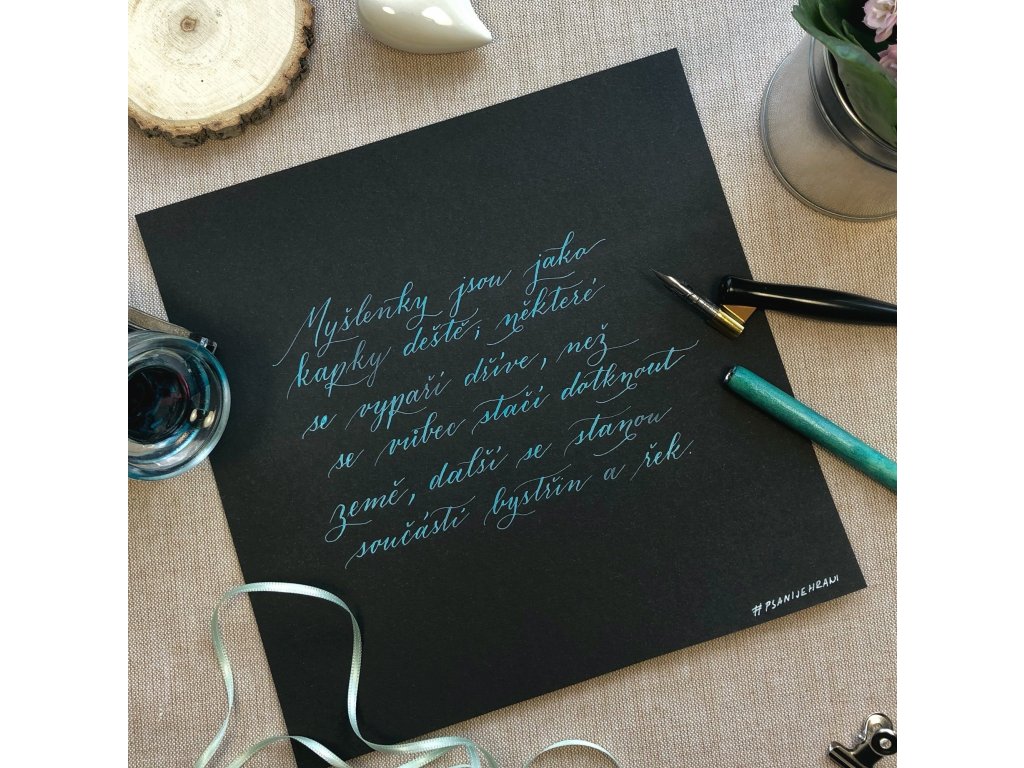 Myšlenky jsou jako
kapky deště; některé
se vypaří dříve, než
se vůbec stačí dotknout
země, další se stanou
součástí bystřin a řek.
#PSANIJEHRANI